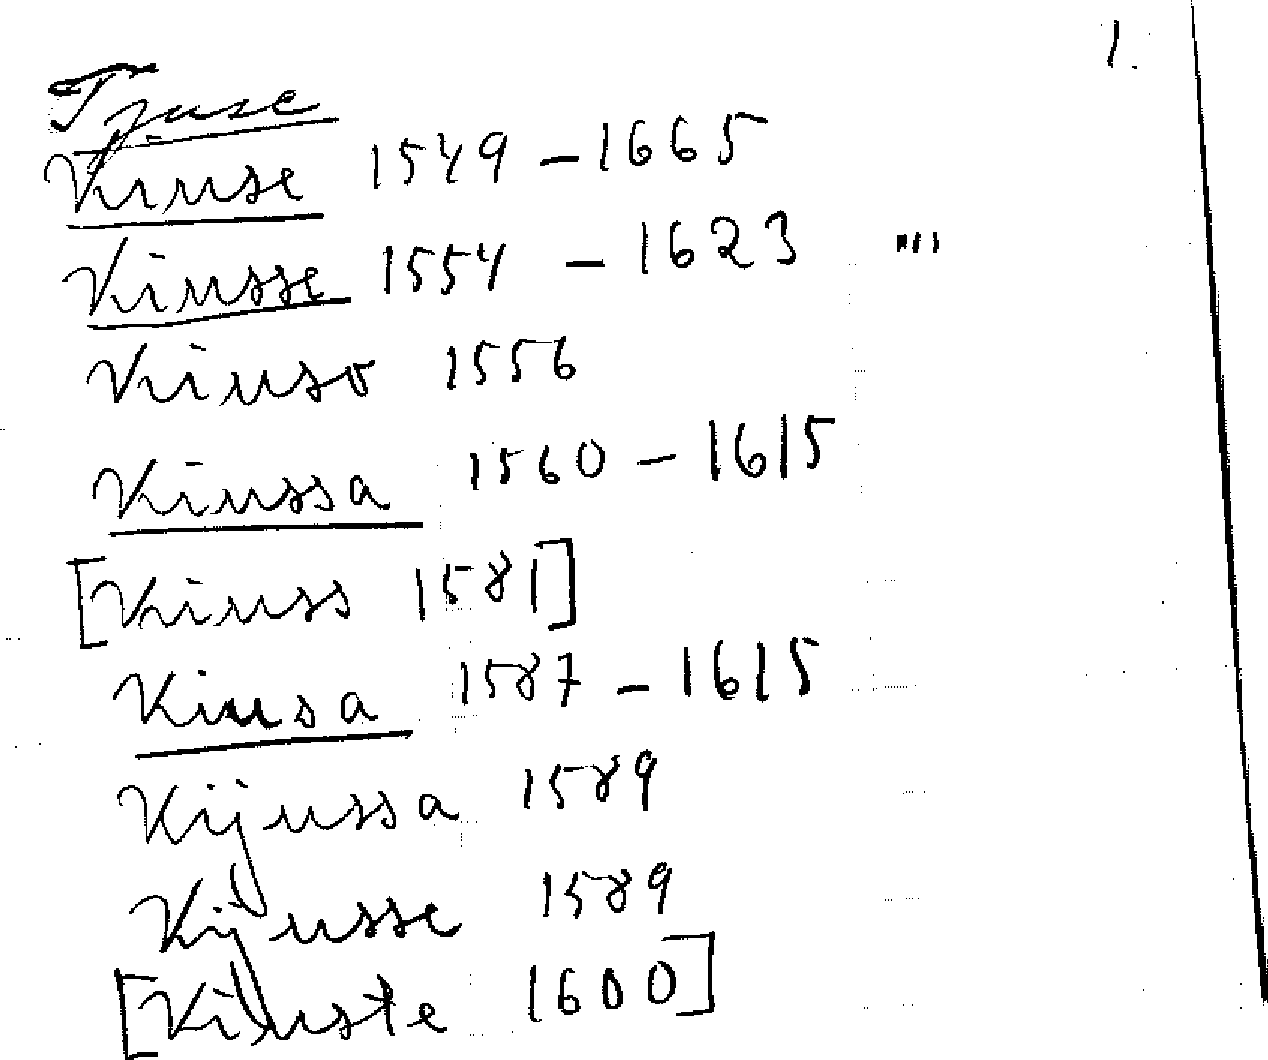 1.
Tjuse
Kiuse 1549 – 1665
Kiusse 1554 – 1623 "'
Kiuso 1556
Kiussa 1560 – 1615
[Kiuss 1581]
Kiusa 1587 – 1615
Kijussa 1589
Kijusse 1589
[Kiuste 1600]